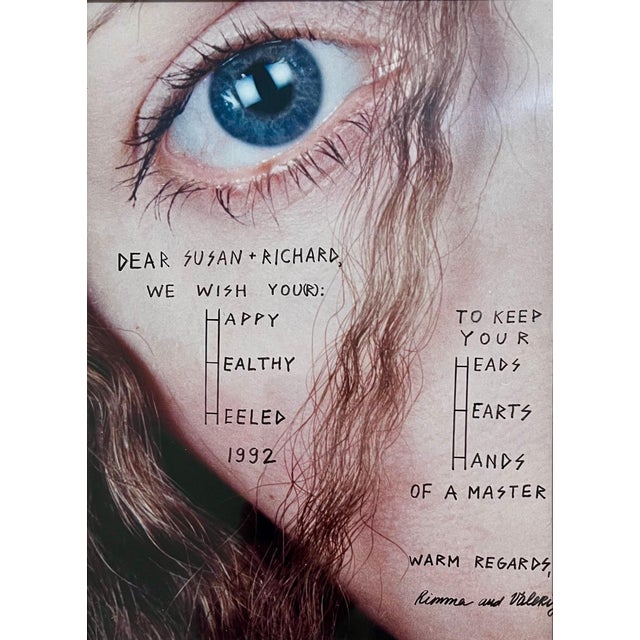 DEAR SUSAN + RICHARD,
WE WISH YOU(R):
HAPPY
HEALTHY
HEELED
1992
TO KEEP
YOUR
HEADS
HEARTS
HANDS
OF A MASTER
WARM REGARDS,
Rimma and Valeriy